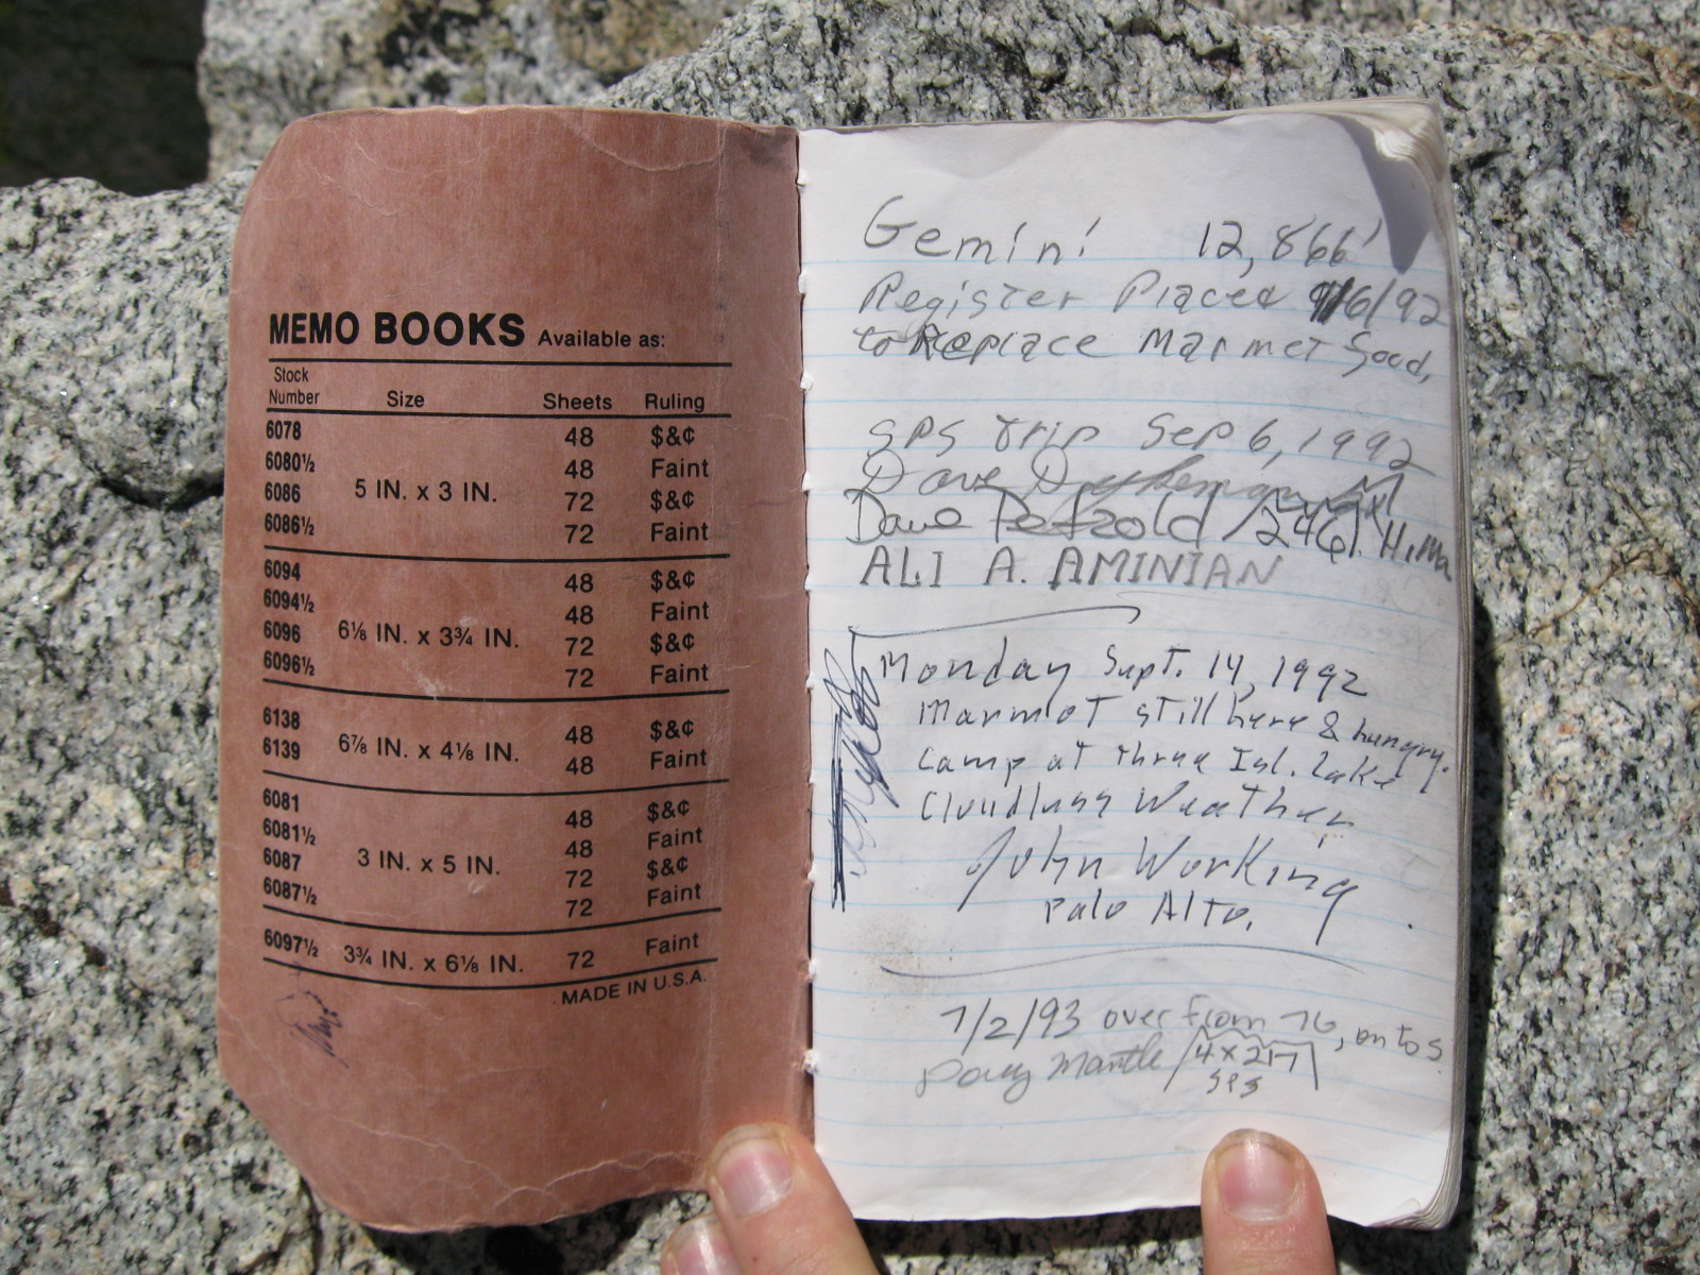 MEMO BOOKS Available as:
Stock Number Size Sheets Ruling
6078 48 $&¢
6080½ 48 Faint
5 IN. x 3 IN.
6086 72 $&¢
6086½ 72 Faint
6094 48 $&¢
6094½ 48 Faint
6⅛ IN. x 3¾ IN.
6096 72 $&¢
6096½ 72 Faint
6138 48 $&¢
6⅞ IN. x 4⅛ IN.
6139 48 Faint
6081 48 $&¢
6081½ 48 Faint
3 IN. x 5 IN.
6087 72 $&¢
6087½ 72 Faint
6097½ 3¾ IN. x 6⅛ IN. 72 Faint
MADE IN U.S.A.
Gemini 12,866'
Register Placed 9/6/92
to Replace Marmet Food,
SPS Trip Sep 6, 1992
Dave Dykeman
Dave Petzold
ALI A. AMINIAN
Monday Sept. 14, 1992
Marmot still here & hungry.
Camp at Three Isl. Lake
Cloudless Weather
John Working
Palo Alto.
7/2/93 over from 76, on to S
Doug Mantle 4x217
SPS